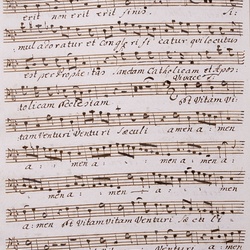 erit non erit erit finis. Si:
mul adoratur et Conglorifi catur qui locutus
est per Prophetas. Sanctam Catholicam et Apos-
Vivace
tolicam Ecclesiam. et Vitam Vi-
tam Venturi Venturi sæculi amen amen
a: men a: men a:
men a: men a: men
a: men et Vitam Vitam Venturi sæculi